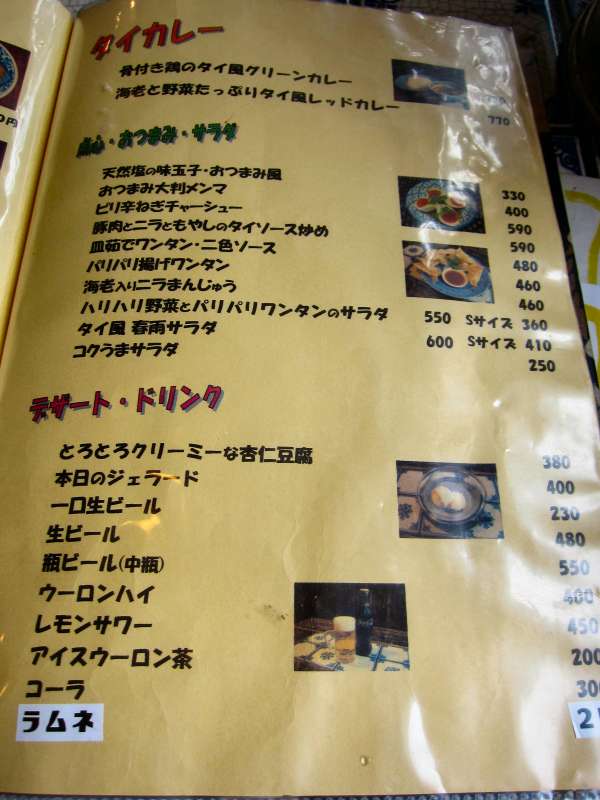 タイカレー
骨付き鶏のタイ風グリーンカレー
海老と野菜たっぷりタイ風レッドカレー 770
点心・おつまみ・サラダ
天然塩の味玉子・おつまみ風 330
おつまみ大判メンマ 400
ピリ辛ねぎチャーシュー 590
豚肉とニラともやしのタイソース炒め 590
皿茹でワンタン・二色ソース 480
パリパリ揚げワンタン 460
海老入りニラまんじゅう 460
ハリハリ野菜とパリパリワンタンのサラダ 550 Sサイズ 360
タイ風 春雨サラダ 600 Sサイズ 410
コクうまサラダ 250
デザート・ドリンク
とろとろクリーミーな杏仁豆腐 380
本日のジェラード 400
一口生ビール 230
生ビール 480
瓶ビール(中瓶) 550
ウーロンハイ 400
レモンサワー 450
アイスウーロン茶 200
コーラ 300
ラムネ
0円